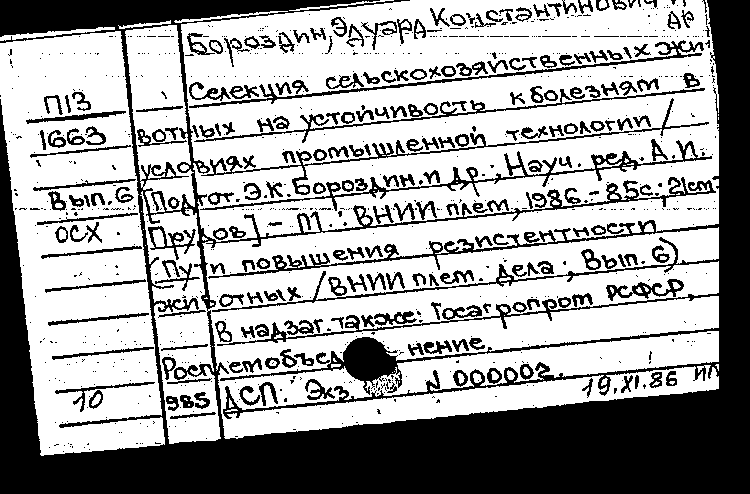 Бороздин, Эдуард Константинович и
др
П13 Селекция сельскохозяйственных жи-
1663 вотных на устойчивость к болезням в
условиях промышленной технологии /
Вып. 6 [Подгот. Э.К. Бороздин и др.; Науч. ред. А.И.
ОСХ Прудов]. – М.: ВНИИплем, 1986. – 85с.; 21см
(Пути повышения резистентности
животных / ВНИИ плем. дела; Вып. 6).
В надзаг. также: Госагропром РСФСР,
Росплемобъед нение.
10 985 ДСП. Экз. N 000002. 19.XI.86